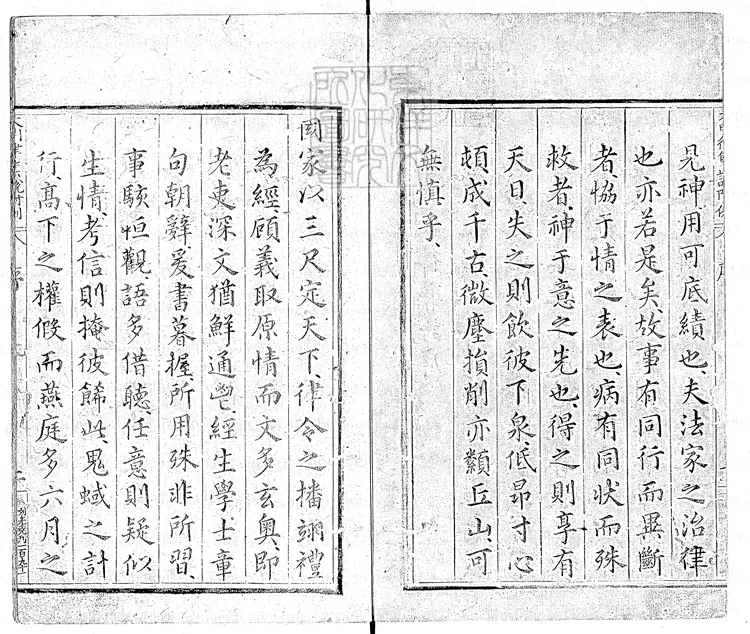 見神用可底績也、夫法家之治律
也亦若是矣、故事有同行而異斷
者、協于情之表也、病有同狀而殊
救者、神于意之先也、得之則享有
天日、失之則飲彼下泉、低昂寸心
頓成千古、微塵損削亦類丘山、可
無慎乎、
國家以三尺定天下、律令之播翊禮
為經、顧義取原情而文多玄奧、即
老吏深文猶鮮通曉、經生學士章
句朝辭、爰書暮握、所用殊非所習、
事駭恒觀、語多借聽、任意則疑似
生情、考信則掩彼餙此、鬼蜮之計
行、高下之權假、而燕庭多六月之